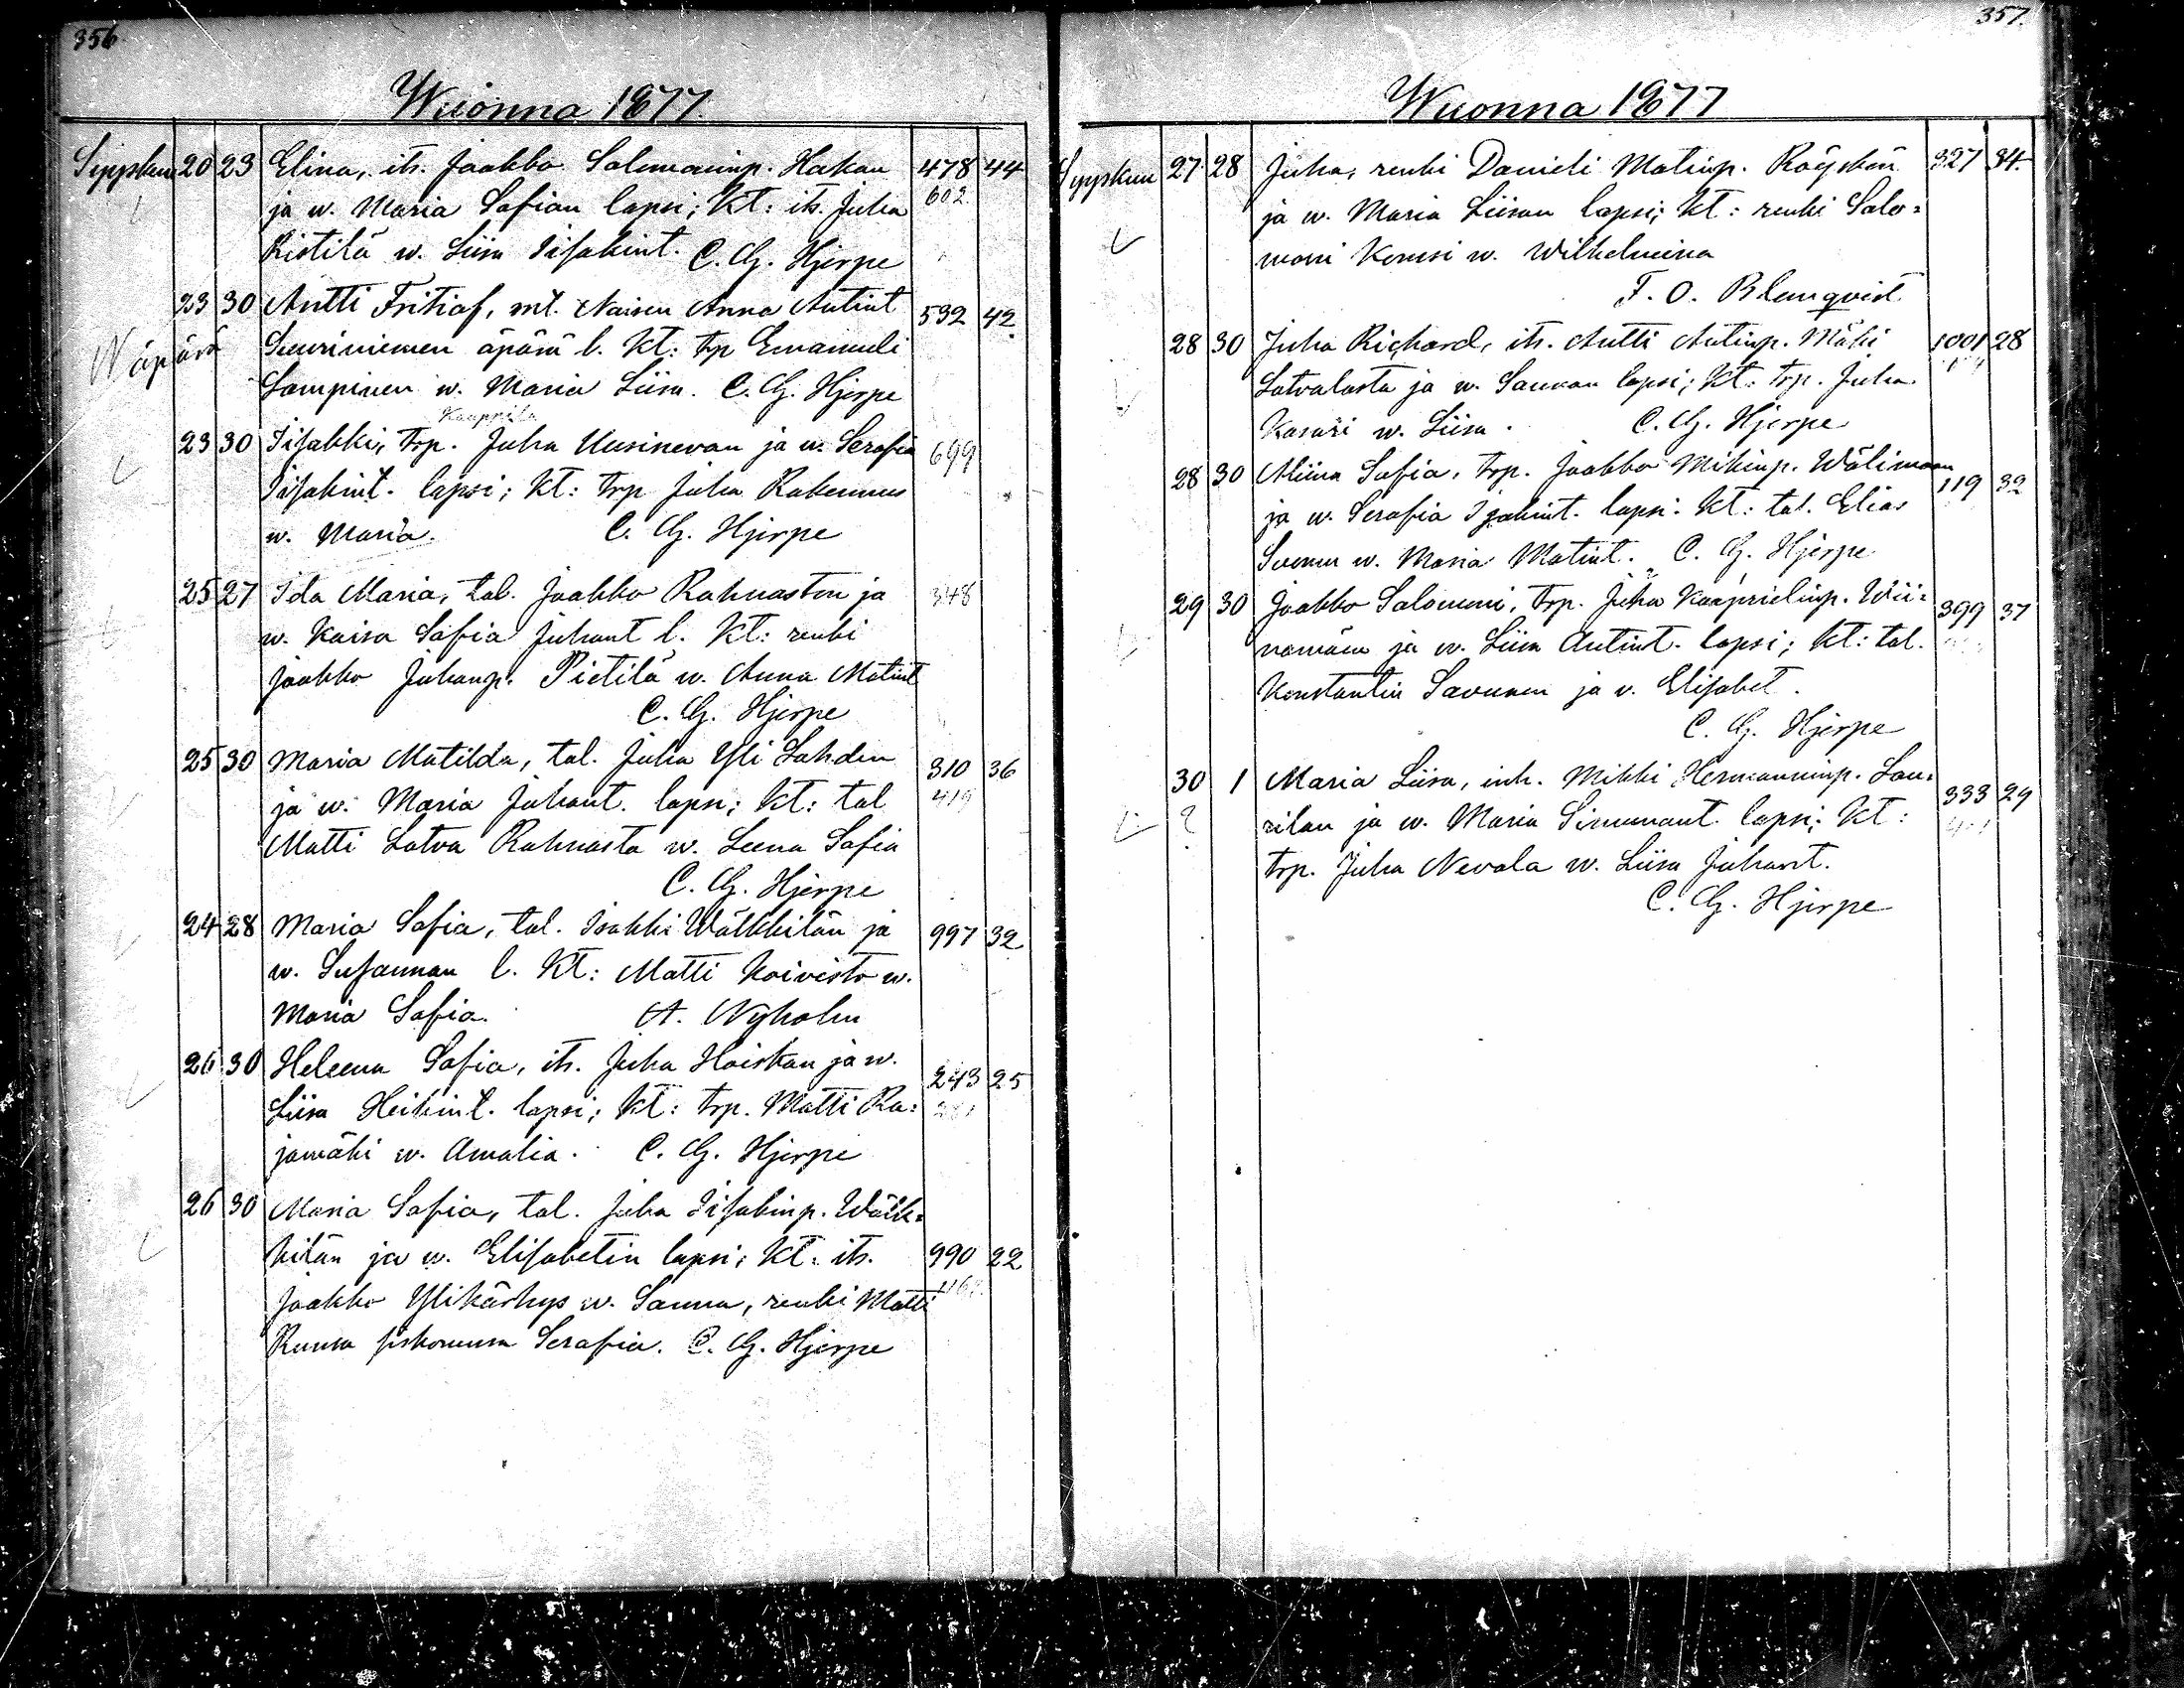 356
Wuonna 1877.
Syyskuu 20 23 Elina, its. Jaakko Salomoninp. Hakan 478 44
ja w. Maria Sofian lapsi; Kt: its. Juha 602
Ristilä w. Liisa Iisakint. C. G. Hjerpe
23 30 Antti Fritiof, mt. Naisen Anna Antint 532 42
Wäpärä Suuriniemen äpärä l. Kt: trp Emanueli
Lampinen w. Maria Liisa. C. G. Hjerpe
Kauppila
23 30 Iisakki, trp. Juha Uusinevan ja w. Serafia 699
Iisakint. lapsi; Kt: trp Juha Rakennus
w. Maria. C. G. Hjerpe
25 27 Ida Maria, tal. Jaakko Rahnaston ja 348
w. Kaisa Sofia Juhant l. Kt: renki
Jaakko Juhanp. Pietilä w. Anna Matint
C. G. Hjerpe
25 30 Maria Matilda, tal. Juha Yli Lahden 310 36
ja w. Maria Juhant. lapsi; Kt: tal 419
Matti Latva Rahnasta w. Leena Sofia
C. G. Hjerpe
24 28 Maria Sofia, tal. Isakki Wälkkilän ja 997 32
w. Susannan l. Kt: Matti Koivisto w.
Maria Sofia. A. Nyholm
26 30 Heleena Sofia, its. Juha Hoiskan ja w. 243 25
Liisa Heikint. lapsi; Kt: trp. Matti Ra=
jamäki w. Amalia. C. G. Hjerpe
26 30 Maria Sofia, tal. Juha Iisakinp. Wälk=
kilän ja w. Elisabetin lapsi; Kt: its. 990 22
Jaakko Ylikärhys w. Sanna, renki Matti
Serafia. C. G. Hjerpe
357.
Wuonna 1877
Syyskuu 27 28 Juha, renki Danieli Matinp. Röyskän 327 34.
ja w. Maria Liisan lapsi; Kt: renki Salo=
moni Komsi w. Wilhelmina
F. O. Blomqvist
28 30 Juha Richard, its. Antti Antinp. Mäki 1001 28
Latvalasta ja w. Sannan lapsi; Kt: trp. Juha
Kasari w. Liisa. C. G. Hjerpe
28 30 Miina Sofia, trp. Jaakko Mikinp. Wälimaan 119 32
ja w. Serafia Isakint. lapsi. Kt: tal. Elias
w. Maria Matint. C. G. Hjerpe
29 30 Jaakko Salomoni, trp. Juha Kaaprielinp. Wii= 399 37
namäen ja w. Liisa Antint. lapsi; Kt: tal.
Konstantin Savunen ja v. Elisabet.
C. G. Hjerpe
30 1 Maria Liisa, inh. Mikki Hermanninp. Lau= 333 29
? rilan ja w. Maria Simmunant. lapsi; Kt:
trp. Juha Nevala w. Liisa Juhant.
C. G. Hjerpe